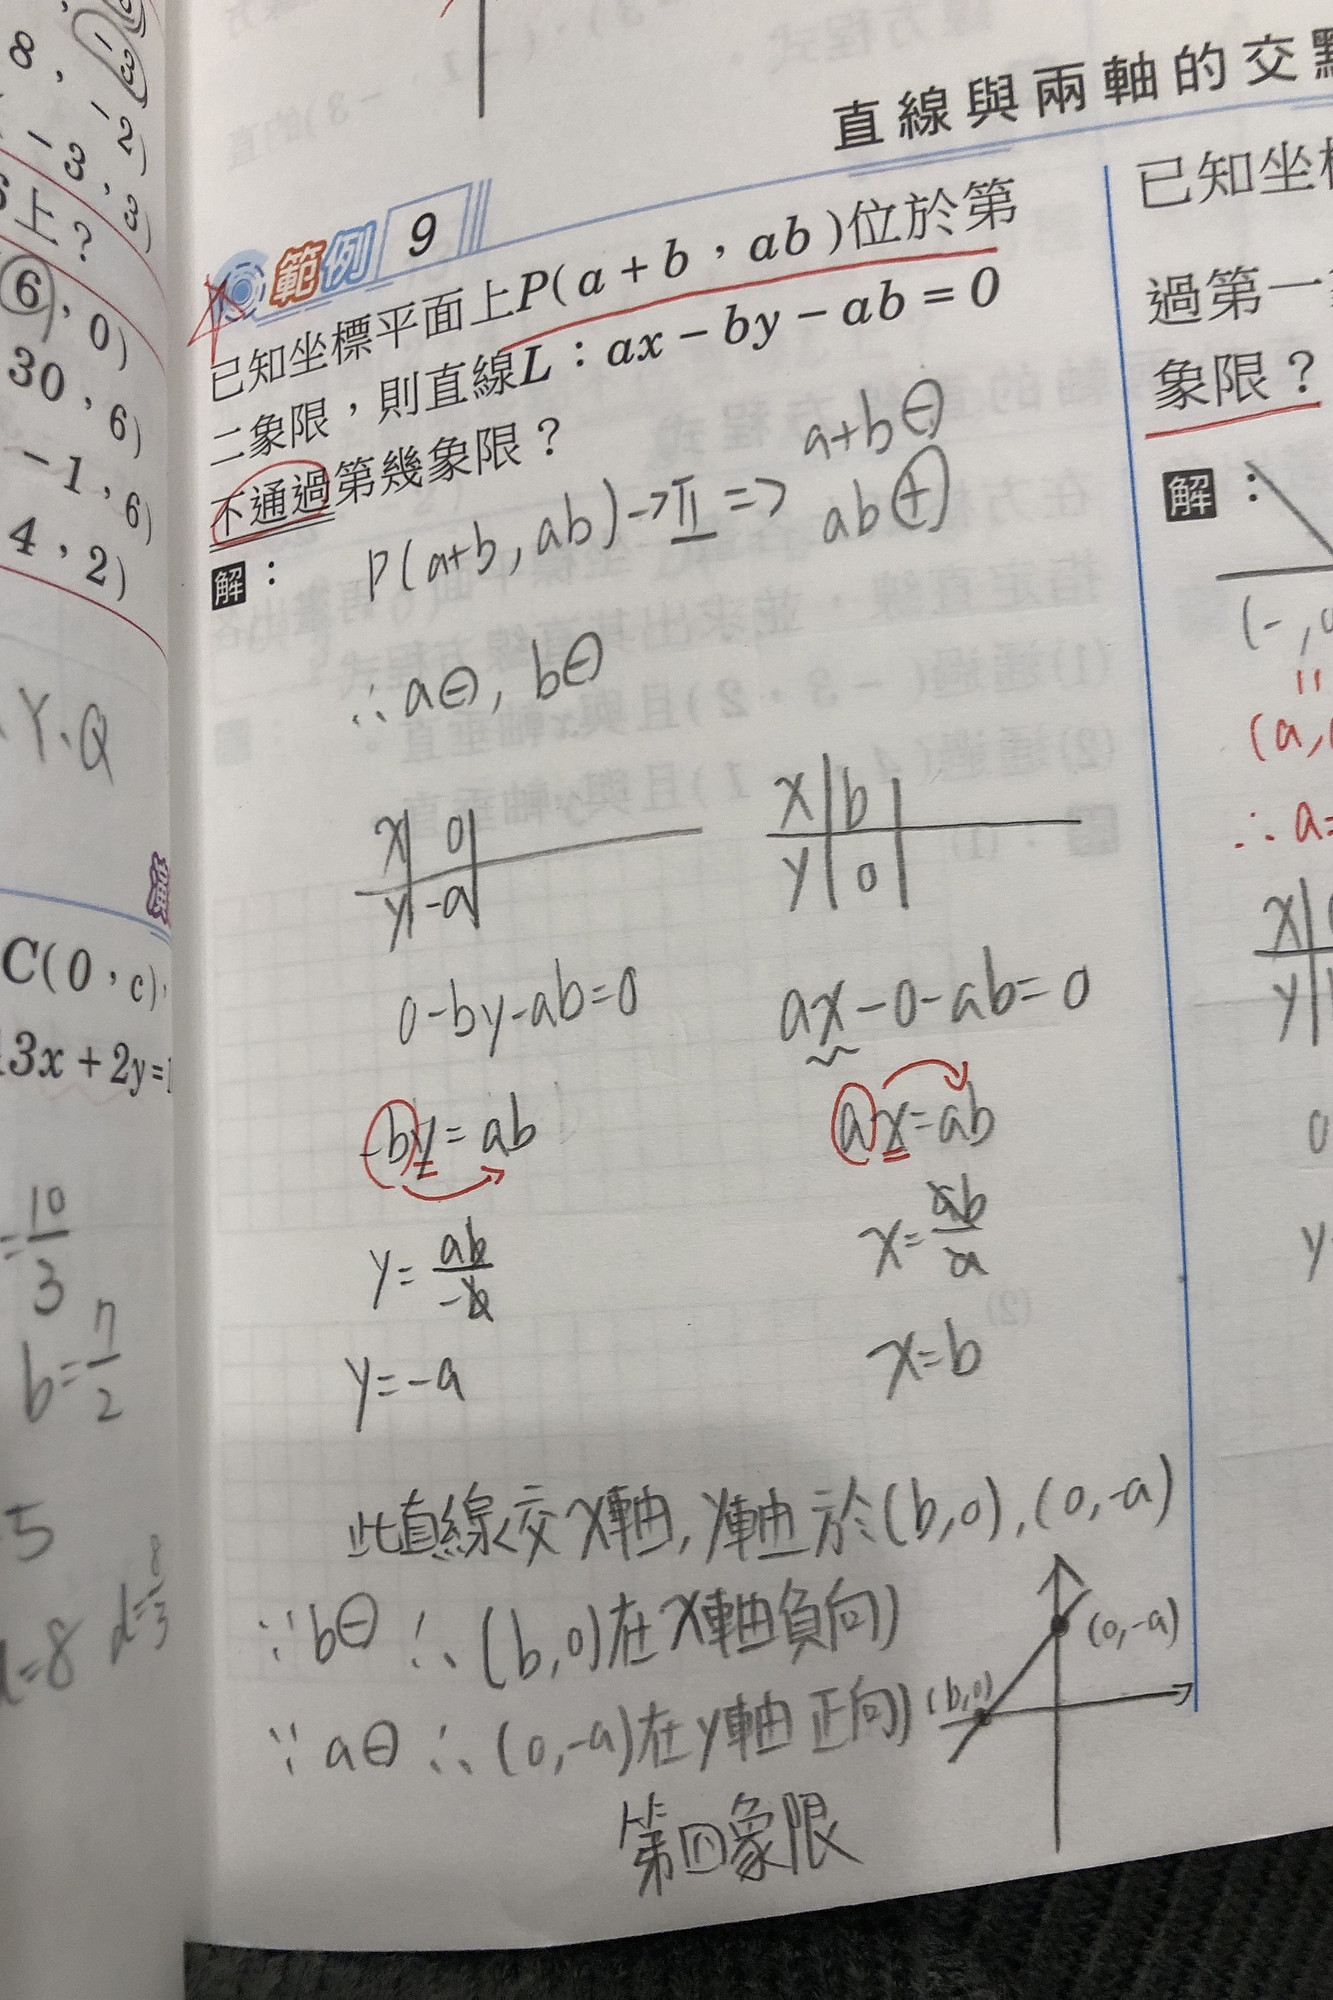 直線與兩軸的交
範例 9
已知坐標平面上P(a+b,ab)位於第
二象限,則直線L:ax-by-ab=0
不通過第幾象限?
解:
P(a+b, ab)→Ⅱ=> a+b⊖
ab⊕
∴a⊖, b⊖
x 0
y -a
0-by-ab=0
-by=ab
y=ab/-b
y=-a
x b
y 0
ax-0-ab=0
ax=ab
x=ab/a
x=b
此直線交x軸,y軸於(b,0),(0,-a)
∵b⊖ ∴(b,0)在x軸負向
∵a⊖ ∴(0,-a)在y軸正向
(0,-a)
(b,0)
第四象限
已知坐
過第一
象限?
解:
(-,
"
(a,
∴a=
x
y
0
y
8,
上?
6,0)
30,6)
-1,6)
4,2)
Y、Q
C(0,c),
3x+2y=
=10/3
b=7/2
5
=8 d=8/3